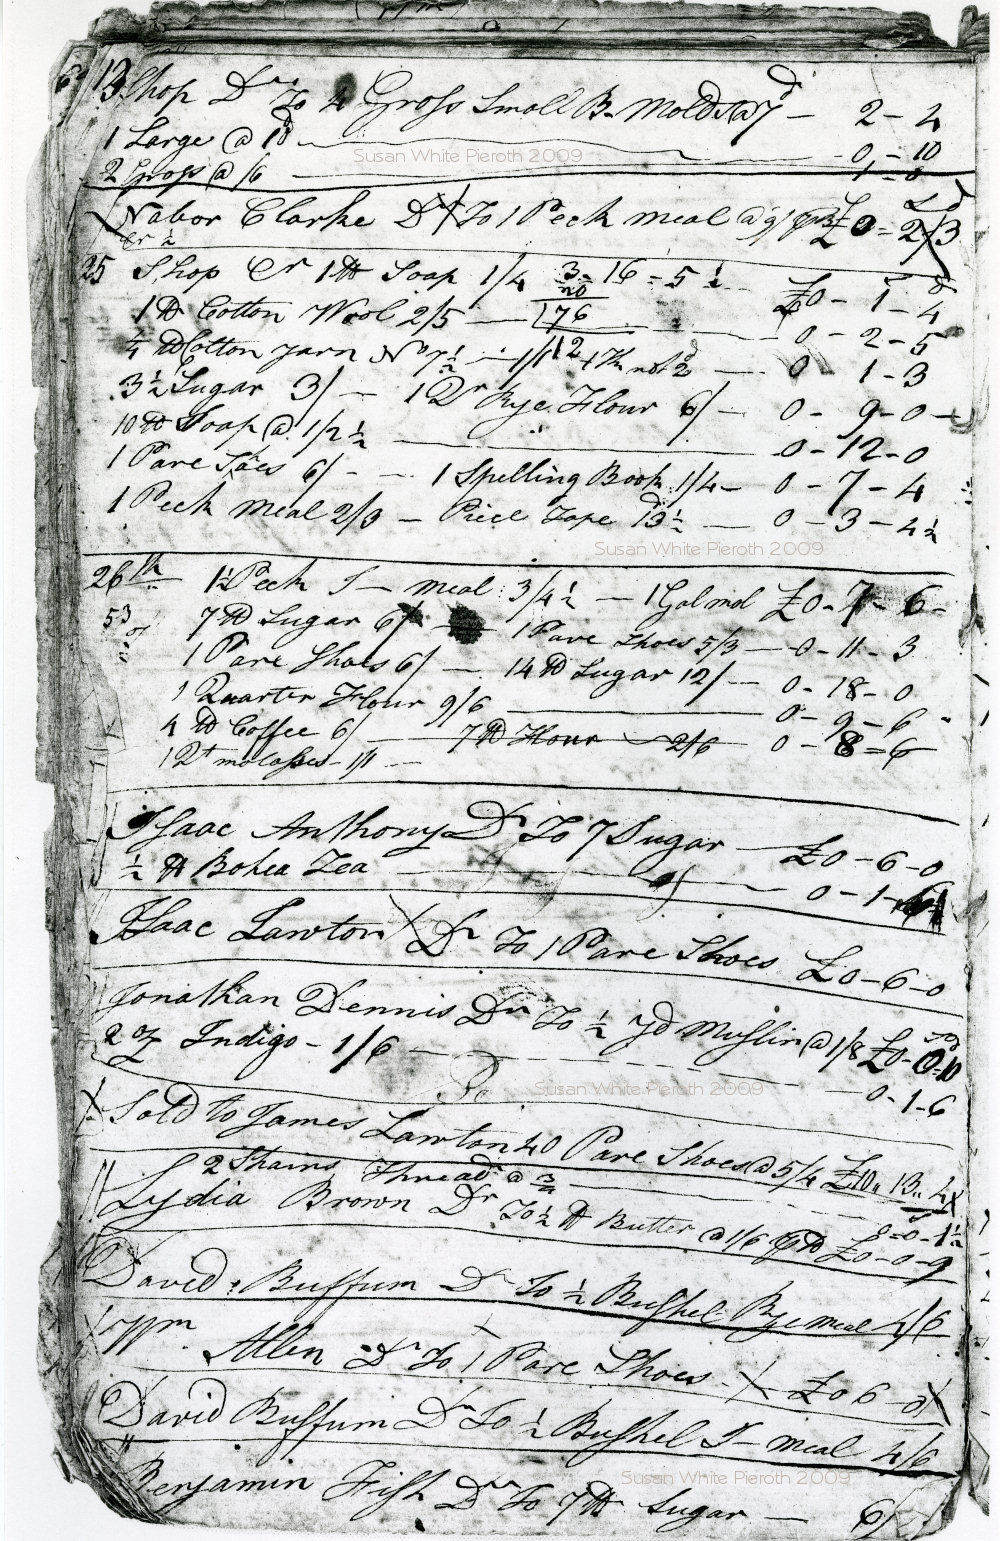 13 Shop Dr To 4 Gross Small B- Molds @ 7d — 2 - 4
1 Large @ 10 — 0 - 10
2 Gross @ /6 — 1 - 0
Susan White Pieroth 2009
Nabor Clarke Dr To 1 Peck meal @ 9/ £0 = 2/3
Cr ½
25 Shop Cr 1 ℔ Soap 1/4 3 = 16 = 5 ½ £0 - 1 - 4
20
1 ℔ Cotton Wool 2/5 — 76 — 0 - 2 - 5
4 ℔ Cotton yarn No 7½ — 1/1 12 — 0 1 - 3
3½ Sugar 3/ — 1 Qr Rye Flour 6/ — 0 - 9 - 0
10 ℔ Soap @ 1/2½ — 0 - 12 - 0
1 Pare Shoes 6/ - - 1 Spelling Book 1/4 — 0 - 7 - 4
1 Peck Meal 2/3 — Piece Tape 13½ — 0 - 3 - 4½
Susan White Pieroth 2009
26th 1½ Peck I — meal 3/4½ — 1 Gal mol £0 - 7 - 6 -
53 7 ℔ Sugar 6/ — 1 Pare Shoes 5/3 — 0 - 11 - 3
1 Pare Shoes 6/ — 14 ℔ Sugar 12/ — 0 - 18 - 0
1 Quarter Flour 9/6 — 0 - 9 - 6
4 ℔ Coffee 6/ — 7 ℔ Flour — 2/6 0 - 8 = 6
1 Qt molasses - 1/1 - -
Isaac Anthony Dr To 7 Sugar — £0 - 6 - 0
½ ℔ Bohea Tea — 9/ — 0 - 1 -
Isaac Lawton Dr To 1 Pare Shoes £0 - 6 - 0
Jonathan Dennis Dr To ½ yd Muslin @ 1/8 £0 - 0 - 10
2 oz Indigo - 1/6 — 0 - 1 - 6
Susan White Pieroth 2009
Sold to James Lawton 40 Pare Shoes @ 5/4 £10 " 13 " 4
2 Skains Thread @ ¾ — 0 = 0 - 1½
Lydia Brown Dr To ½ ℔ Butter @ 1/6 £0 - 0 - 9
David Buffum Dr To ½ Bushel Rye meal 4/6
Wm Allen Dr To 1 Pare Shoes — £0 6 - 0
David Buffum Dr To ½ Bushel I — meal 4/6
Susan White Pieroth 2009
Benjamin Fish Dr To 7 ℔ Sugar — 6/